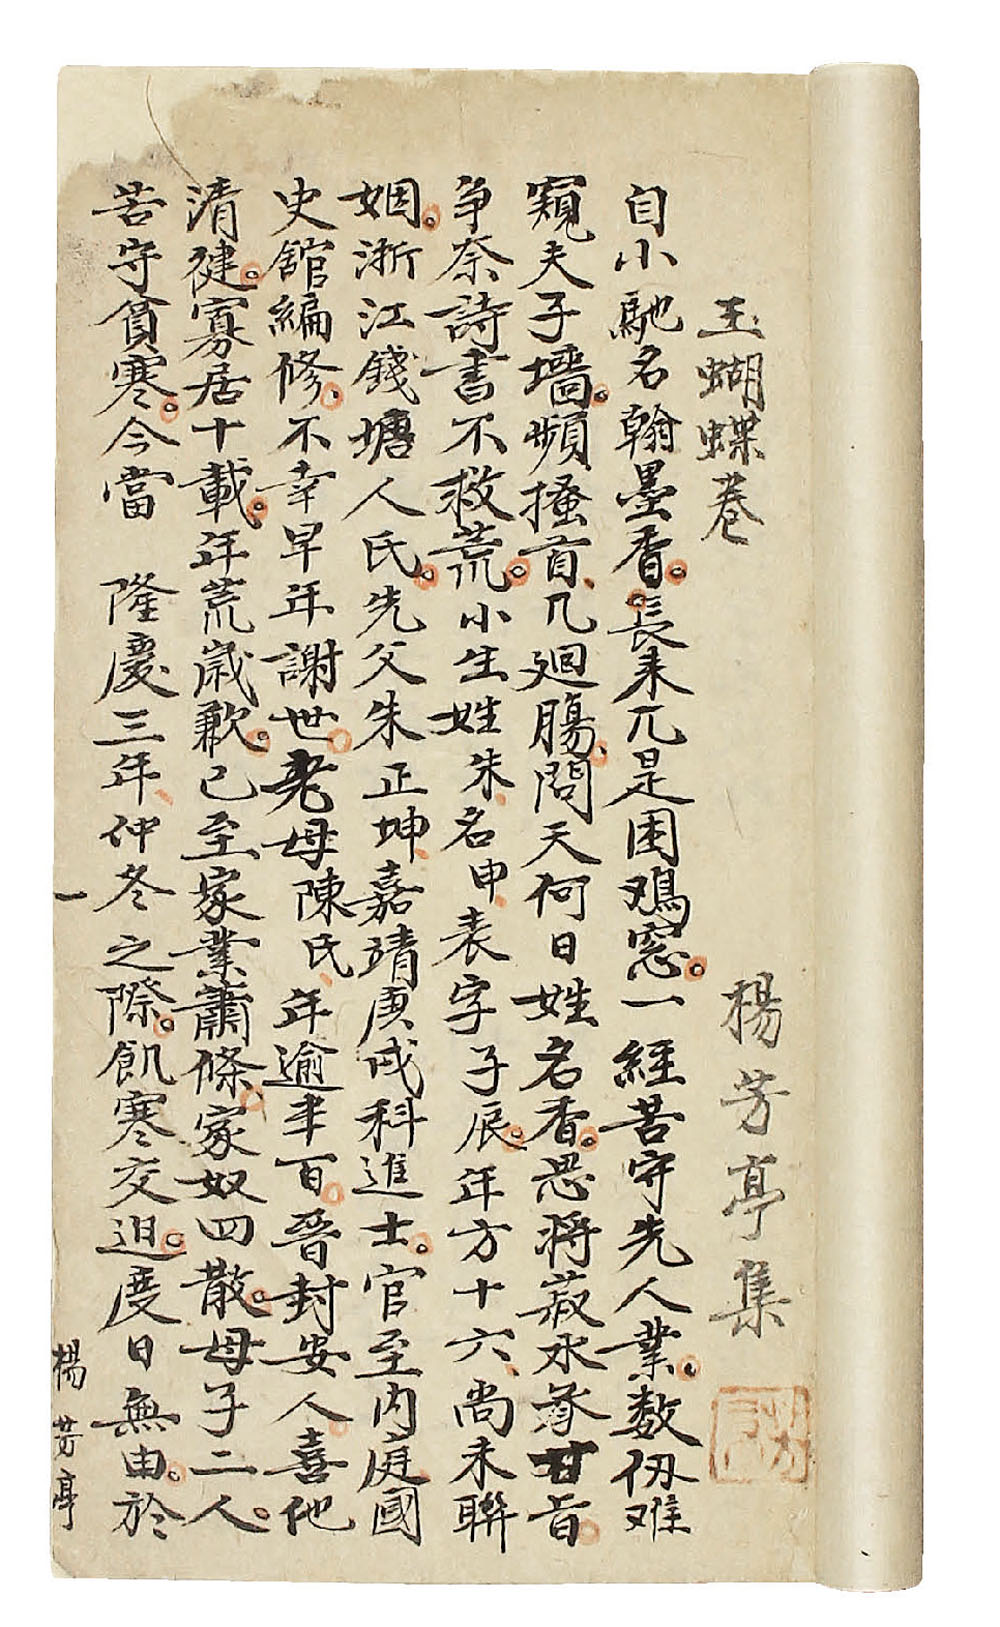 玉蝴蝶卷
楊芳亭集
自小馳名翰墨香。長来兀是困鳮窓。一經苦守先人業。数仭难
窺夫子墻。頻搔首、几廻腸、問天何日姓名香。思将菽水奉甘旨。
争奈詩書不救荒。小生姓朱、名申、表字子辰。年方十六、尚未聨
姻。浙江錢塘人氏。先父朱正坤、嘉靖庚戌科進士。官至内庭國
史舘編修。不幸早年謝世。老母陳氏、年逾半百。晉封安人。喜他
清健。寡居十載。年荒歲歉。已至家業蕭條。家奴四散。母子二人。
苦守貧寒。今當 隆慶三年、仲冬之際。飢寒交迫。度日無由。於
一
楊芳亭